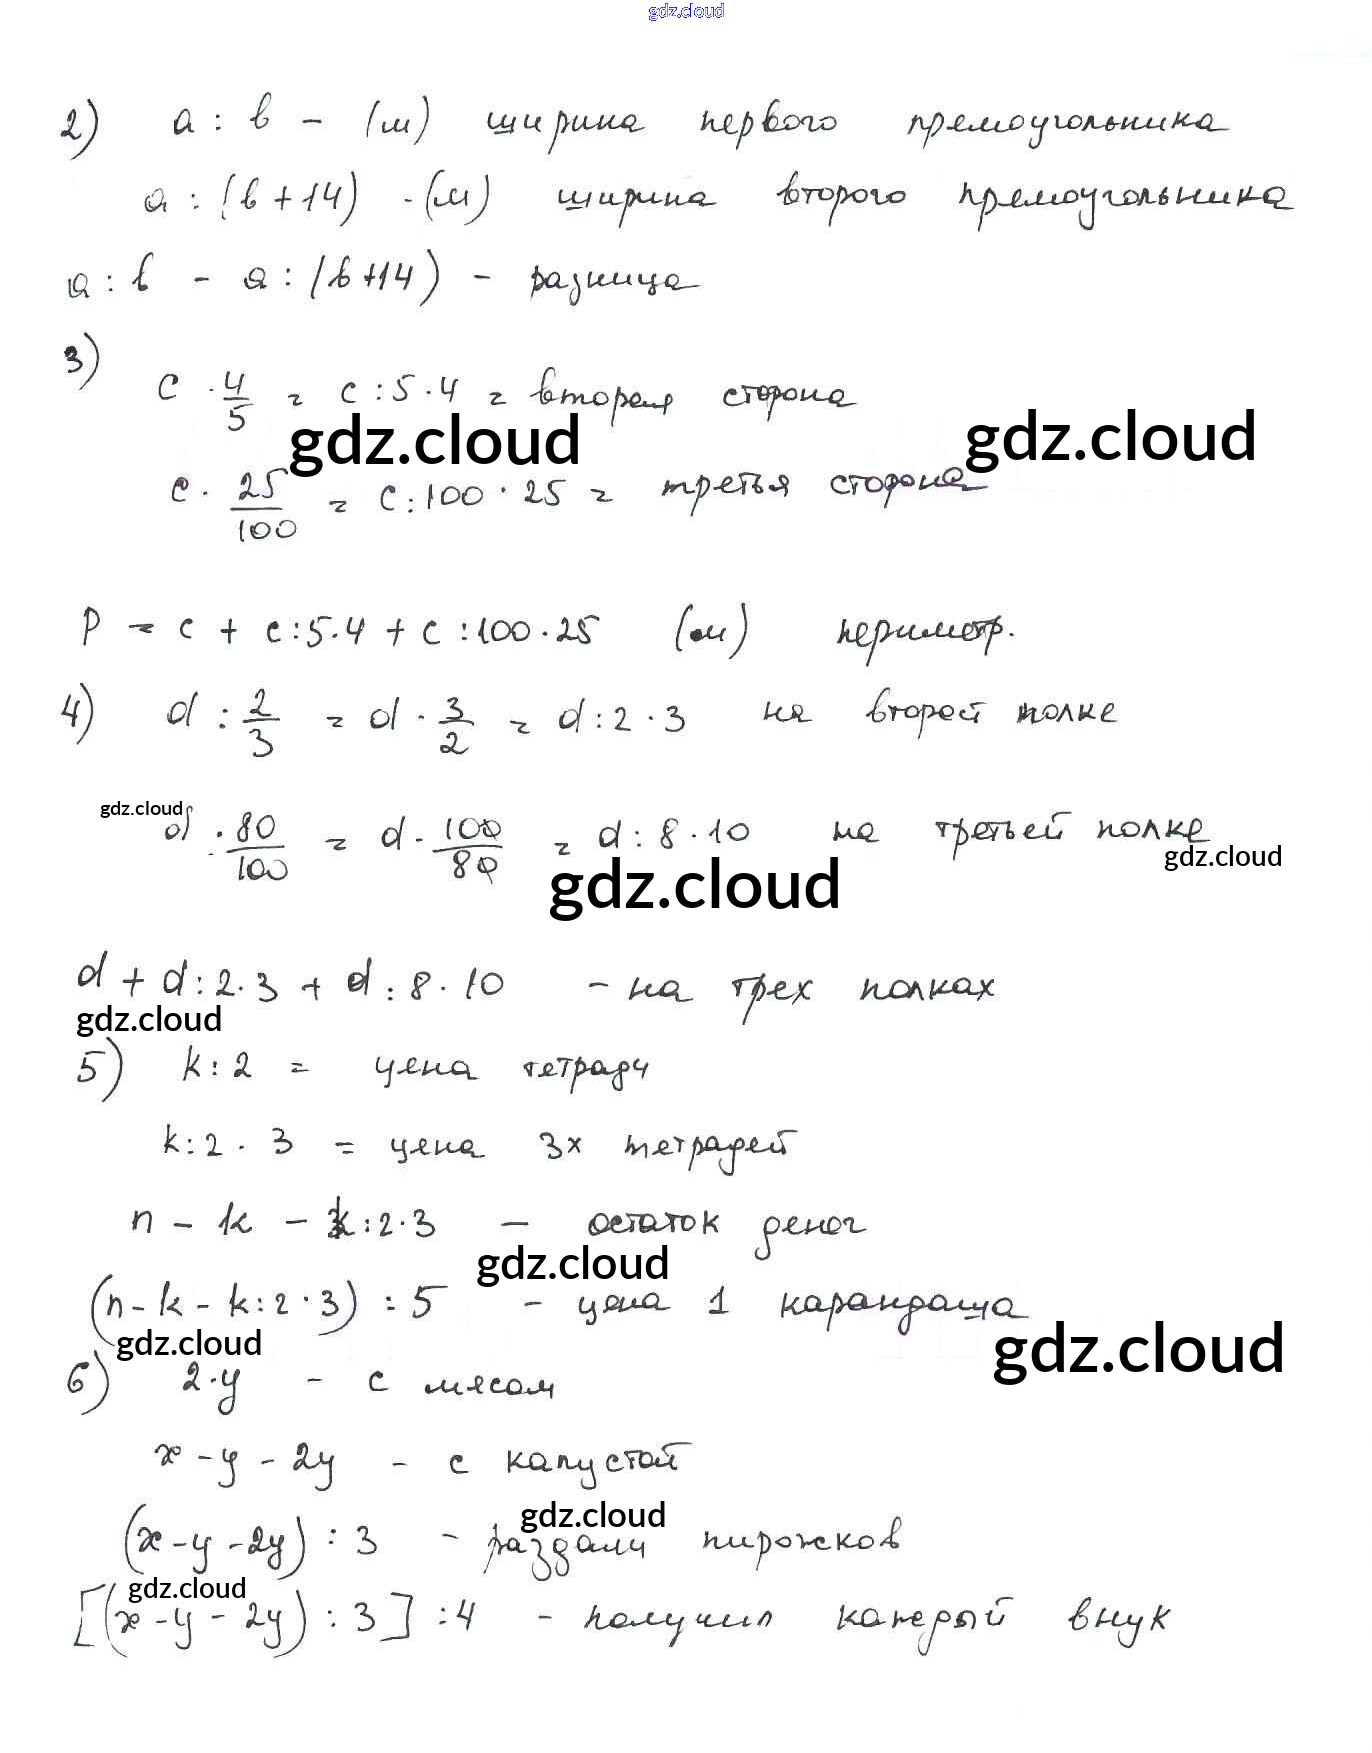 gdz.cloud
2) a : b - (м) ширина первого прямоугольника
a : (b + 14) - (м) ширина второго прямоугольника
a : b - a : (b + 14) - разница
3)
c · 4/5 = c : 5 · 4 = вторая сторона
gdz.cloud gdz.cloud
c · 25/100 = c : 100 · 25 = третья сторона
P = c + c : 5 · 4 + c : 100 · 25 (м) периметр.
4) d : 2/3 = d · 3/2 = d : 2 · 3 на второй полке
gdz.cloud
d · 80/100 = d · 100/80 = d : 8 · 10 на третьей полке
gdz.cloud
gdz.cloud
d + d : 2 · 3 + d : 8 · 10 - на трех полках
gdz.cloud
5) k : 2 = цена тетради
k : 2 · 3 = цена 3х тетрадей
n - k - k : 2 · 3 - остаток денег
gdz.cloud
(n - k - k : 2 · 3) : 5 - цена 1 карандаша
gdz.cloud gdz.cloud
6) 2 · y - с мясом
x - y - 2y - с капустой
gdz.cloud
(x - y - 2y) : 3 - раздали пирожков
gdz.cloud
[(x - y - 2y) : 3] : 4 - получил каждый внук